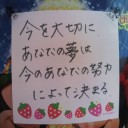 今を大切に
あなたの夢は
今のあなたの努力
によって決まる